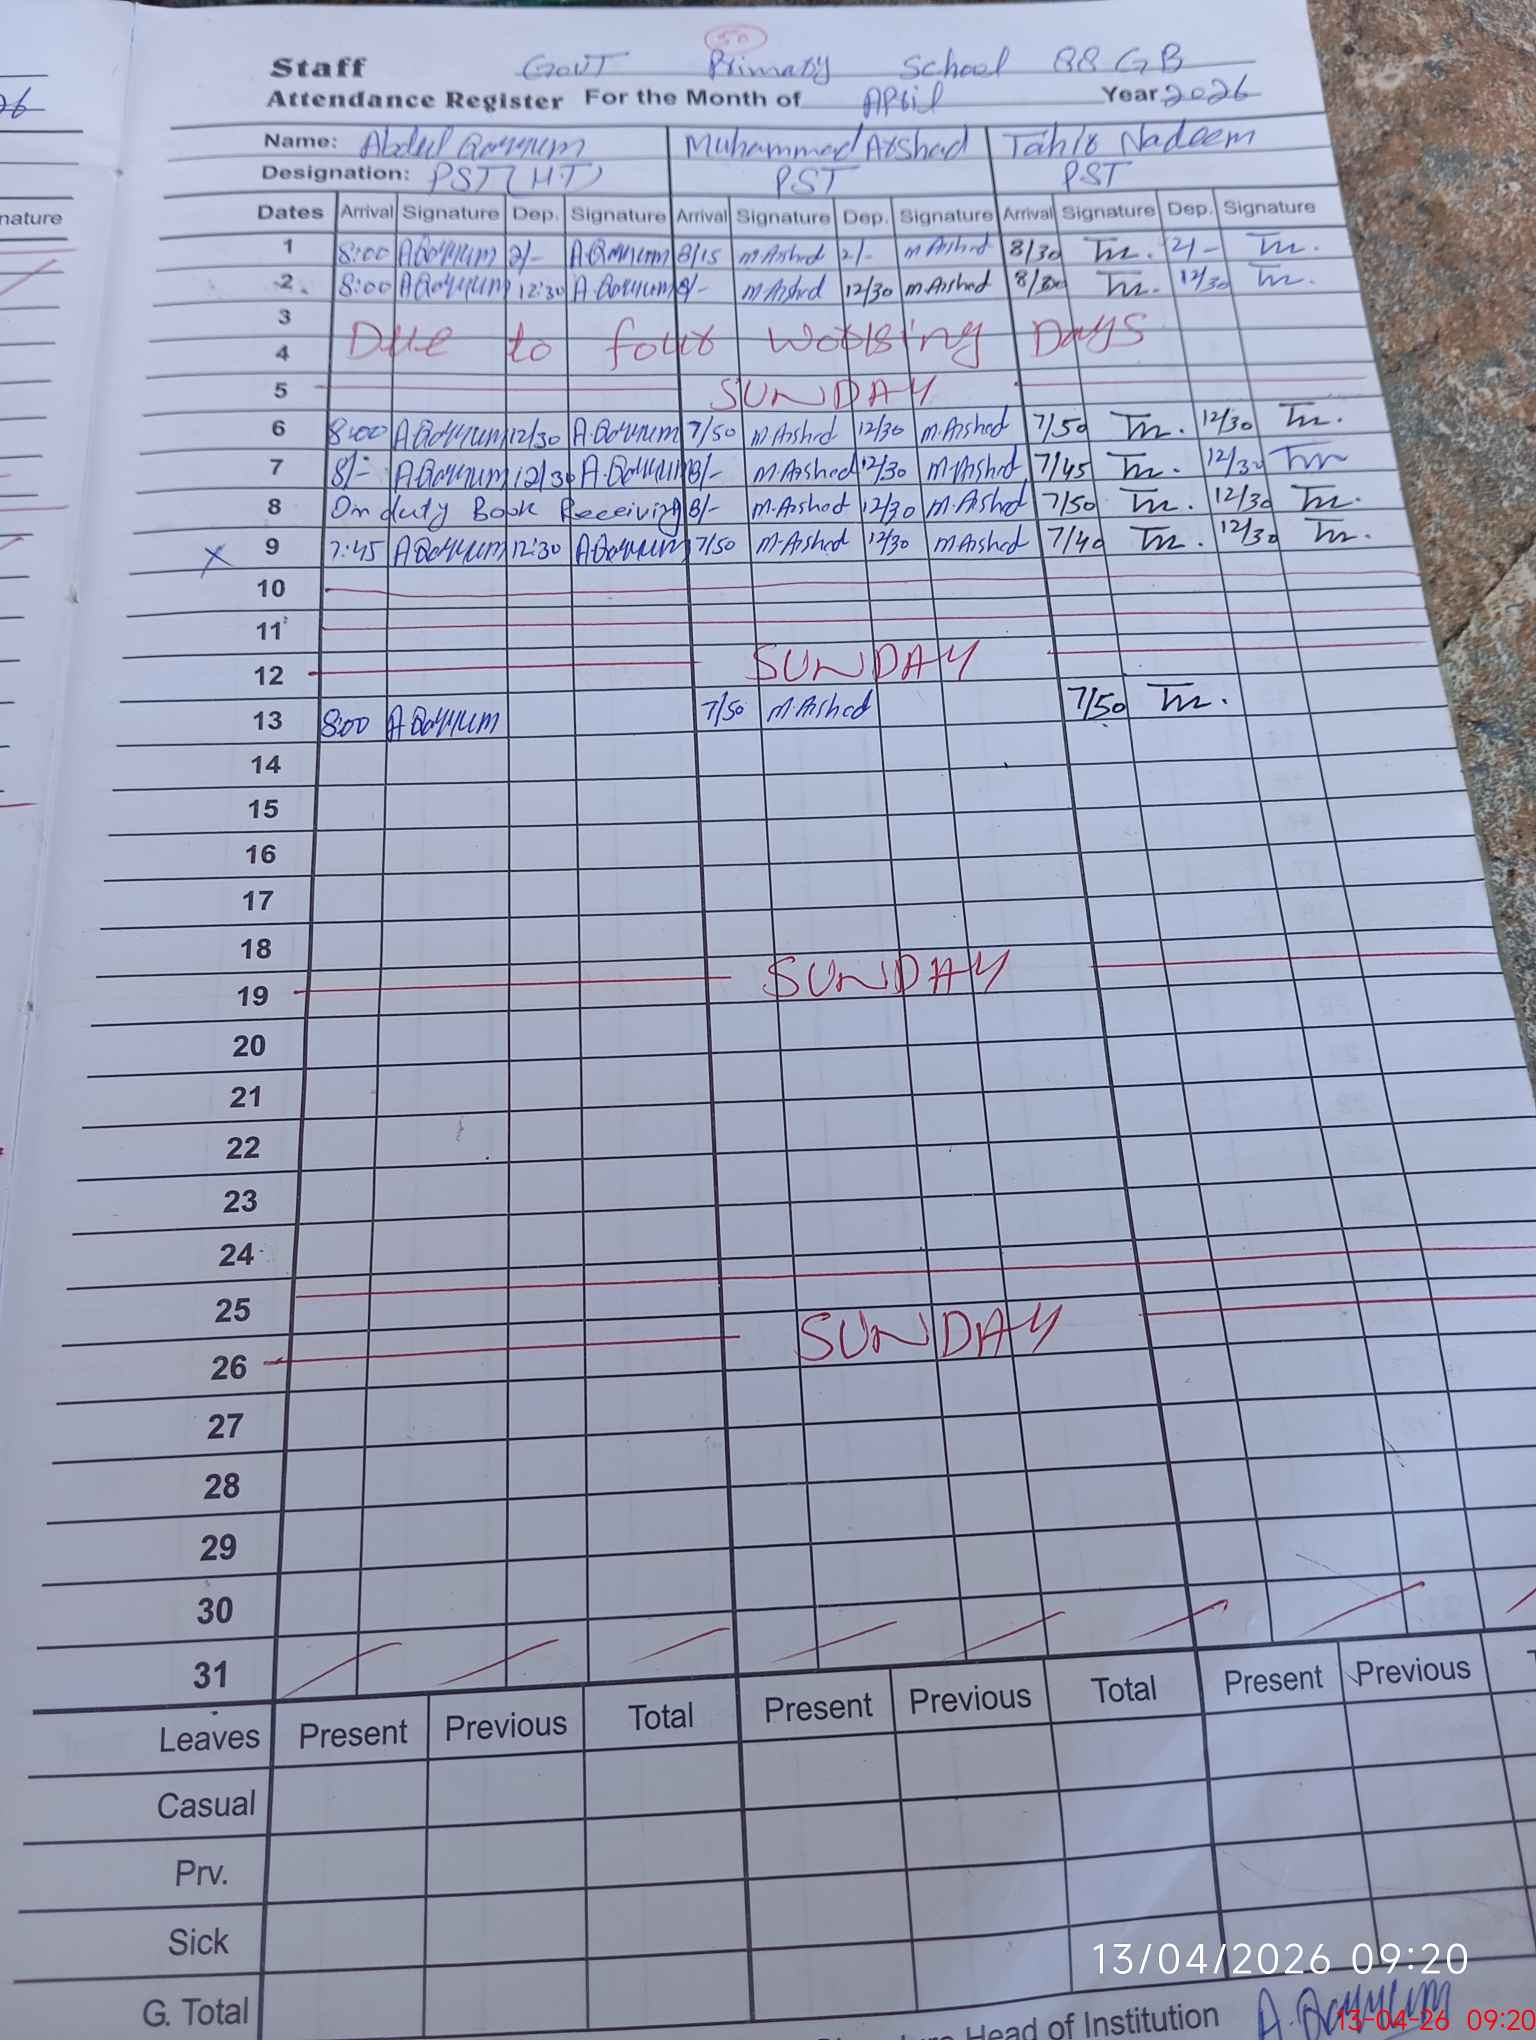 50
Staff GOVT Primary School 88 GB
Attendance Register For the Month of April Year 2026
Name: Abdul Qayyum Muhammad Arshad Tahir Nadeem
Designation: PST (H.T) PST PST
nature Dates Arrival Signature Dep. Signature Arrival Signature Dep. Signature Arrival Signature Dep. Signature
1 8:00 A.Qayyum 2/- A.Qayyum 8/15 M.Arshad 2/- M.Arshad 8/30 Tn. 2/- Tn.
2 8:00 A.Qayyum 12:30 A.Qayyum 8/- M.Arshad 12/30 M.Arshad 8/30 Tn. 12/30 Tn.
3
Due to four working Days
4
5 SUNDAY
6 8:00 A.Qayyum 12/30 A.Qayyum 7/50 M.Arshad 12/30 M.Arshad 7/50 Tn. 12/30 Tn.
7 8/- A.Qayyum 12/30 A.Qayyum 8/- M.Arshad 12/30 M.Arshad 7/45 Tn. 12/30 Tn
8 On duty Book Receiving 8/- M.Arshad 12/30 M.Arshad 7/50 Tn. 12/30 Tn.
x 9 7:45 A.Qayyum 12:30 A.Qayyum 7/50 M.Arshad 12/30 M.Arshad 7/40 Tn. 12/30 Tn.
10
11
12 SUNDAY
13 8:00 A.Qayyum 7/50 M.Arshad 7/50 Tn.
14
15
16
17
18
19 SUNDAY
20
21
22
23
24
25
26 SUNDAY
27
28
29
30
31
Leaves Present Previous Total Present Previous Total Present Previous
Casual
Prv.
Sick
13/04/2026 09:20
G. Total
Head of Institution A.Qayyum
13-04-26 09:20